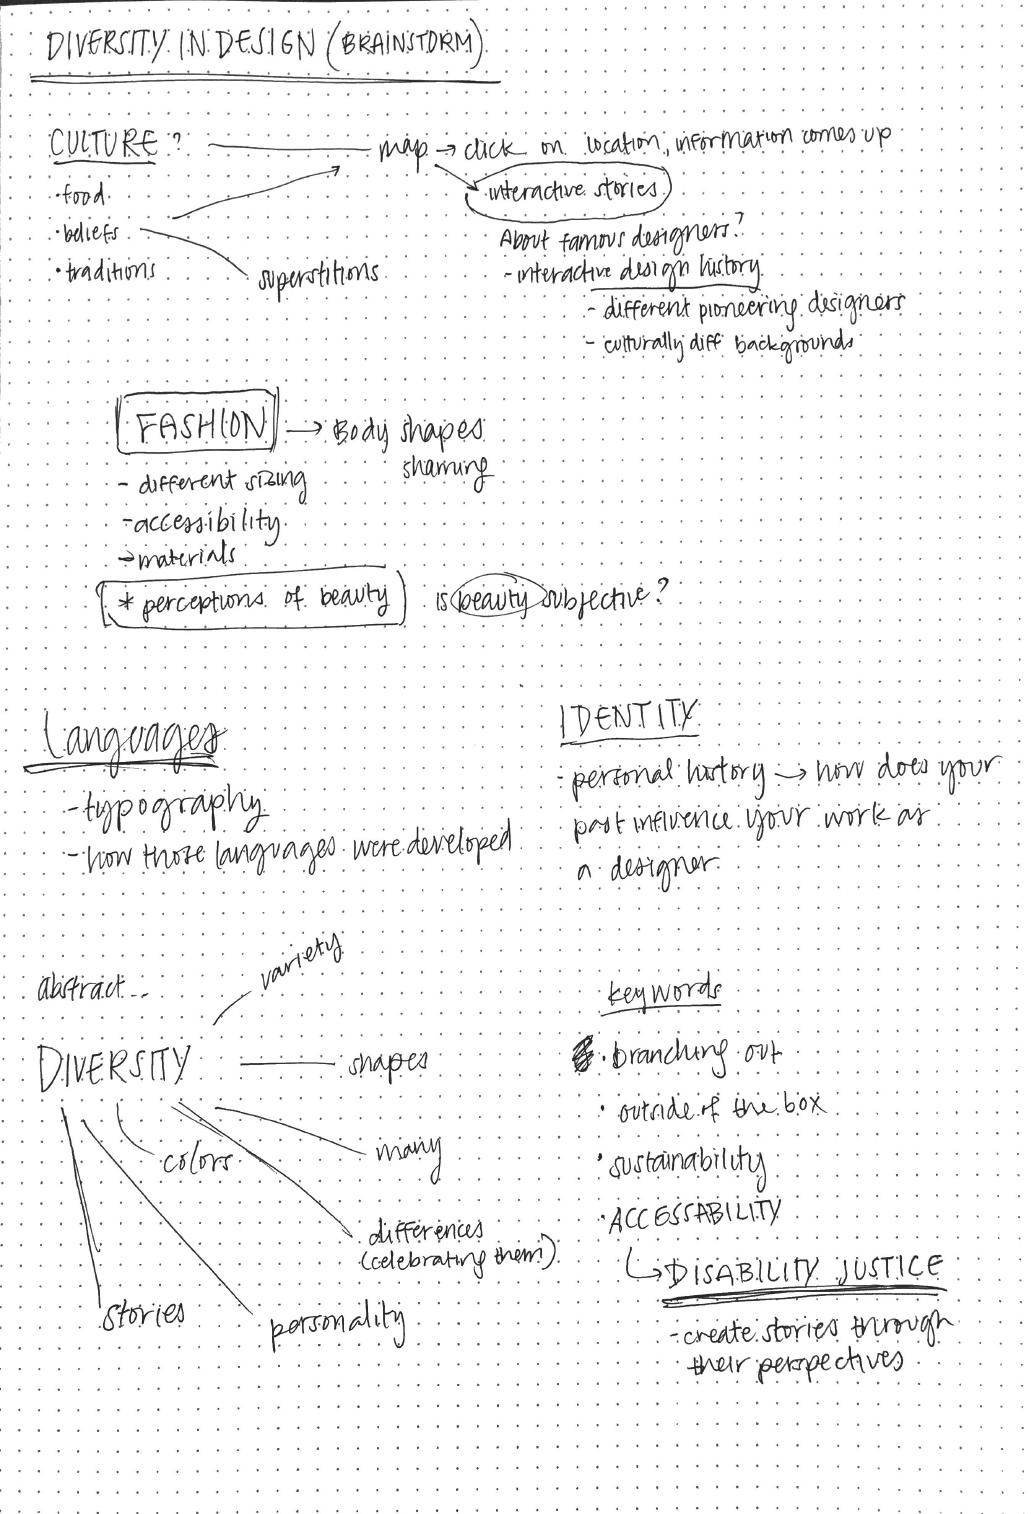 DIVERSITY IN DESIGN (BRAINSTORM)
CULTURE? map → click on location, information comes up
• food
• beliefs
• traditions
superstitions
interactive stories
About famous designers?
- interactive design history
- different pioneering designers
- culturally diff backgrounds
FASHION → Body shapes
shaming
- different sizing
- accessibility
→ materials
* perceptions of beauty is beauty subjective?
Languages
- typography
- how those languages were developed
IDENTITY
- personal history → how does your
past influence your work as
a designer
abstract...
DIVERSITY
variety
shapes
many
colors
differences
(celebrating them)
personality
stories
keywords
• branching out
• outside of the box
• sustainability
• ACCESSABILITY
↳ DISABILITY JUSTICE
- create stories through
their perspectives